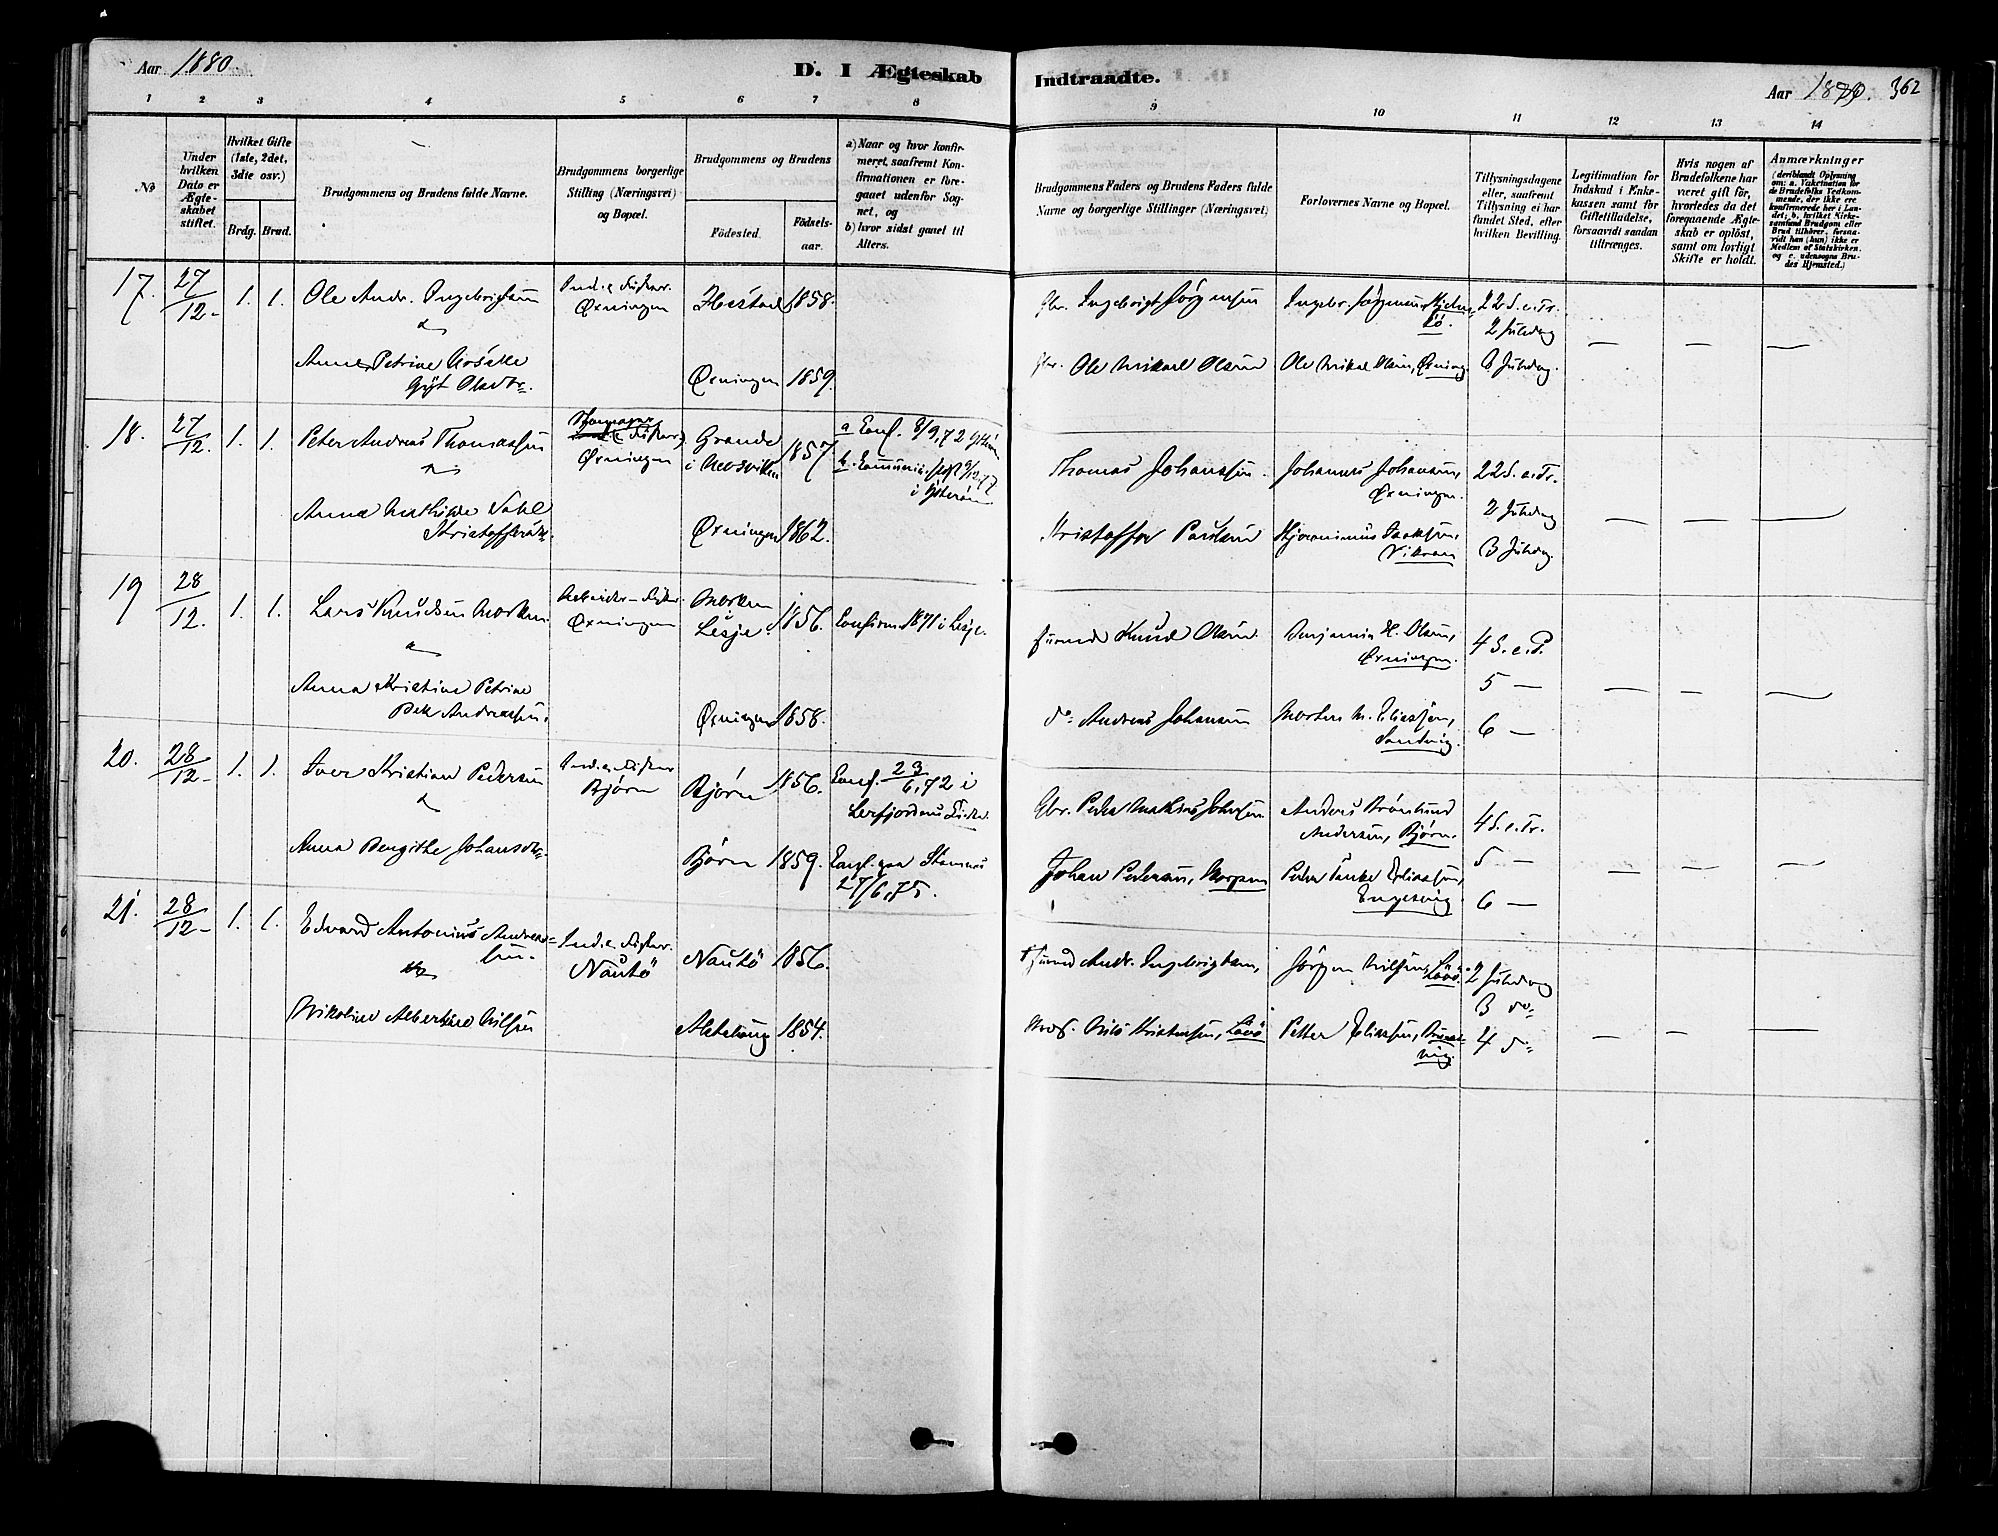 Aar 1880.
D. I Ægteskab
Indtraadte.
Aar 1880. 362
1 2 3 4 5 6 7 8 9 10 11 12 13 14
No
Under hvilken Dato er Ægteskabet stiftet.
Hvilket Gifte (1ste, 2det, 3die osv.)
Brdg. Brud.
Brudgommens og Brudens fulde Navne.
Brudgommens borgerlige Stilling (Næringsvei) og Bopæl.
Brudgommens og Brudens
Fødested.
Fødsels-aar.
a) Naar og hvor konfirmeret, saafremt Konfirmationen er foregaaet udenfor Sognet, og
b) hvor sidst gaaet til Alters.
Brudgommens Faders og Brudens Faders fulde Navne og borgerlige Stillinger (Næringsvei)
Forlovernes Navne og Bopæl.
Tillysningsdagene eller, saafremt Tillysning ei har fundet Sted, efter hvilken Bevilling.
Legitimation for Indskud i Enkekassen samt for Giftetilladelse, forsaavidt saadan tiltrænges.
Hvis nogen af Brudefolkene har været gift før, hvorledes da det foregaaende Ægteskab er opløst, samt om lovligt Skifte er holdt.
Anmærkninger
(deriblandt Oplysning om: a. Vakcination for de Brudefolks Vedkommende, der ikke ere konfirmerede her i Landet; b. hvilket Kirkesamfund Brudgom eller Brud tilhører, forsaavidt han (hun) ikke er Medlem af Statskirken, og c. udensogns Brudes Hjemsted.)
17. 27/12. 1. 1. Ole Andr. Ingebrigtsen
Ind. & Fisker.
Øxningen
Herstad 1858.
Gbr. Ingebrigt Jørgensen
Ingebr. Jørgensen,
22 S. e. Tr.
2 Juledag
Anne Petrine
Olsdtr.
Øxningen 1859.
Gbr. Ole Mikael Olsen
Ole Mikal Olsen, Øxning.
3 Juledag.
— — —
18. 27/12. 1. 1. Peter Andreas Thomassen
Fisker,
Øxningen
Grande
i
1857
a Conf. 8/9,72
b.
i
Thomas Johanssen.
Johannes Johansen,
Øxningen.
22 S. e. Tr.
2 Juledag
Anna Mathilde
Kristoffersdt.
Øxningen 1862.
Kristoffer Paulsen
Hjeronimus Isaksen,
Vikran
3 Juledag.
— — —
19 28/12. 1. 1. Lars Knudsen Morken
Arbeider - Fisker.
Øxningen
Morken
i
Lesje. 1856.
Confirm. 1871 i Lesje.
Knud Olsen.
Benjamin H. Olsen,
Øxningen.
4 S. e. P.
5 —
Anna Kristine Petrine
Andreassen.
Øxningen 1858.
do Andreas Johansen
Morten M. Eliassen,
Sandvig.
6 —
— — —
20. 28/12 1. 1. Iver Kristian Pedersen
Ind. & Fisker
Bjørn
Bjørn 1856.
Conf. 23/6,72 i
Leerfjordens Kirke.
Gbr. Peder Mathias Johnsen
Anders Brønlund
Andersen, Bjørn.
4 S. e. Tr.
Anna Bergithe Johansdtr.
Bjørn 1859.
Conf. paa Stamnes
27/6,75.
Johan Pedersen,
Peder Tanke Eliassen,
Engesvig.
5 —
6 —
— — —
21. 28/12 1. 1. Edvard Antonius Andreas-
sen.
Ind. & Fisker.
Nautø
Nautø 1856.
Andr. Ingebrigtsen,
Jørgen Nilsen, Løvø.
2 Juledag
3 do
Nikoline Albertine Nilsen
Alstahoug 1854.
Nils Kristensen, Løvø
Petter Eliassen,
4 do
— — —